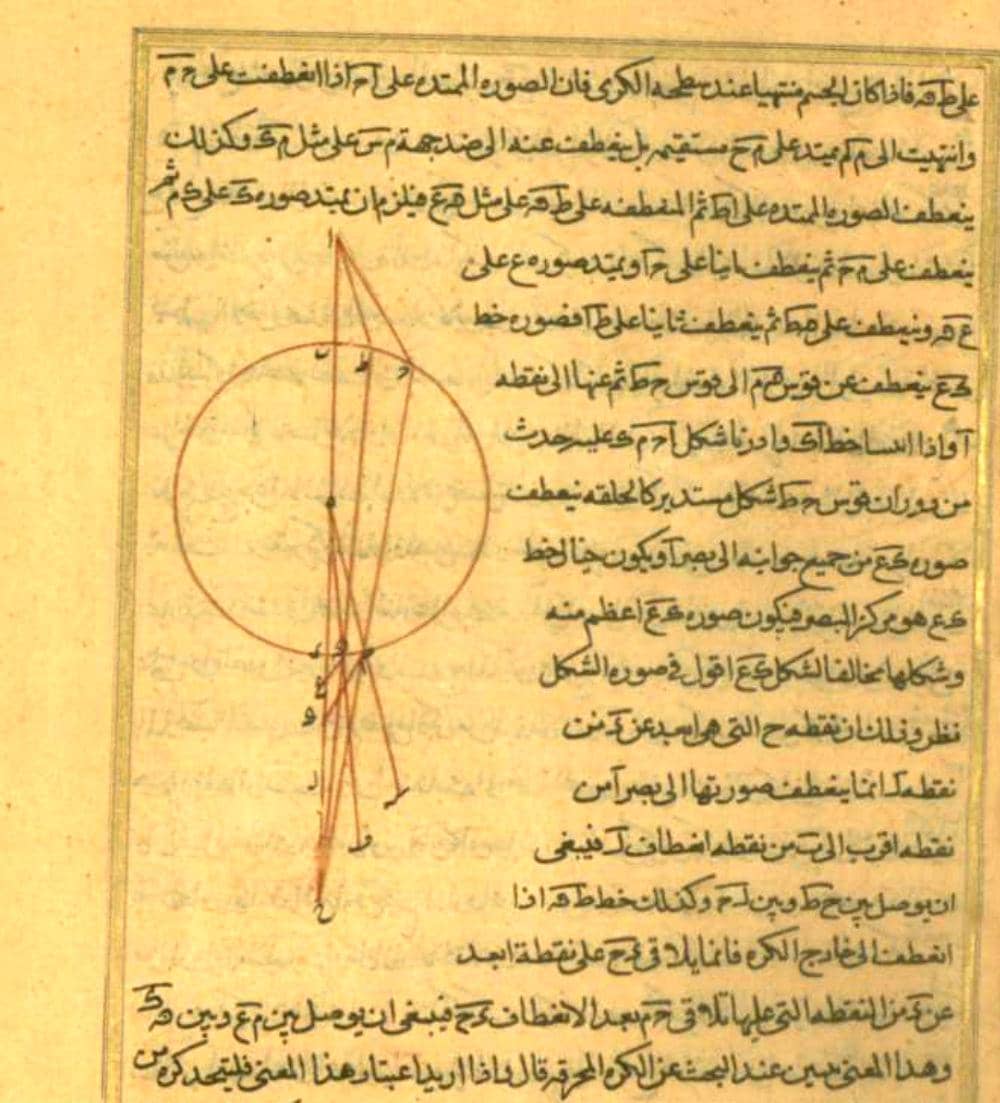 على ط ق فاذا كان الجسم منتهيا عند سطحه الكرى فان الصوره الممتده على ا ح اذا انعطفت على ح م
وانتهيت الى م لم يمتد على م ح مستقيمه بل ينعطف عنه الى ضد جهة م س على مثل م ك وكذلك
ينعطف الصوره الممتده على ا ط ثم المنعطفه على ط ق على مثل ق ع فيلزم ان يمتد صوره ك على ك م ثم
ينعطف على م ح ثم ينعطف ثانيا على ح ا ويمتد صوره ع على
ع ق وينعطف على ق ط ثم ينعطف ثانيا على ط ا فصوره خط
ك ع ينعطف عن قوس ق م الى قوس ح ط ثم عنها الى نقطه
ا واذا اثبتنا خط ا ك وادرنا شكل ا ح م ك عليه حدث
من دوران قوس ح ط شكل مستدير كالحلقه ينعطف
صوره ك ع من جميع جوانبه الى بصر ا ويكون خيال خط
ك ع هو مركز البصر فيكون صوره ك ع اعظم منه
وشكلها مخالفا لشكل ك ع اقول فى صوره الشكل
نظر وذلك ان نقطه ح التى هى ابعد عن د من
نقطه ك انما ينعطف صورتها الى بصر ا من
نقطه اقرب الى ب من نقطه انعطاف ك فينبغى
ان يوصل بين ح ط وبين ل ح وكذلك خط ط ق اذا
انعطف الى خارج الكره فانما يلاقى د ح على نقطة ابعد
عن د من النقطه التى عليها تلاقى ح م بعد الانعطاف د ح فينبغى ان يوصل بين م ع وبين ق ك
وهذا المعنى مبين عند البحث عن الكره المحرقه قال واذا اريد اعتبار هذا المعنى فليتخذ كره من